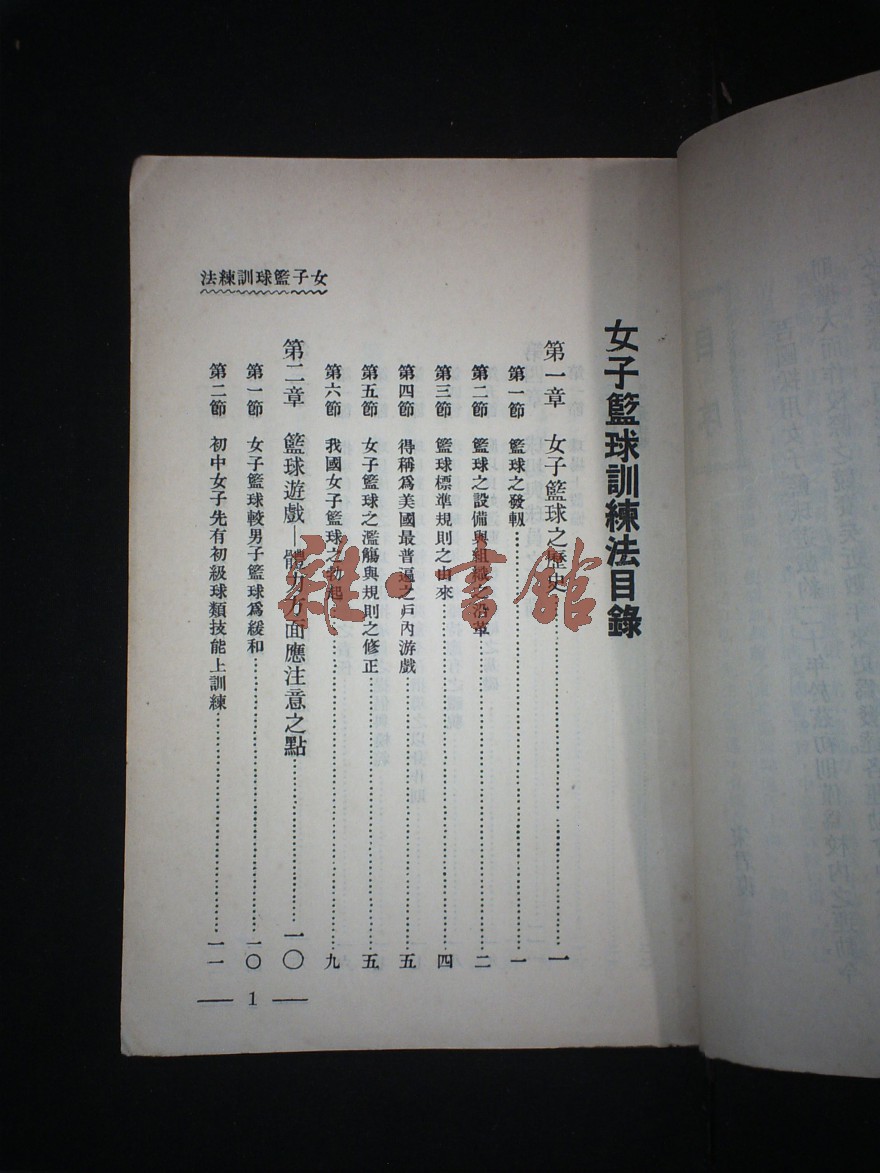 女子籃球訓練法
女子籃球訓練法目錄
第一章　女子籃球之歷史…………一
第一節　籃球之發軔…………一
第二節　籃球之設備與組織之沿革…………二
第三節　籃球標準規則之由來…………四
第四節　得稱爲美國最普遍之戶內游戲…………五
第五節　女子籃球之濫觴與規則之修正…………五
第六節　我國女子籃球之勃起…………九
第二章　籃球遊戲—體力方面應注意之點…………一〇
第一節　女子籃球較男子籃球爲緩和…………一〇
第二節　初中女子先有初級球類技能上訓練…………一一
— 1 —
雜·書館